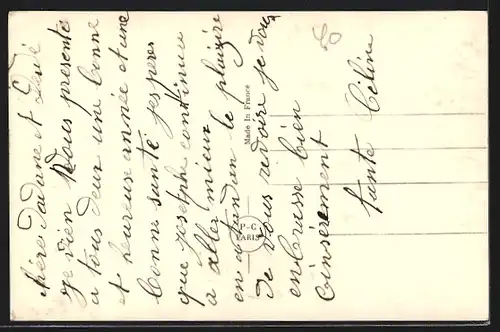 chère Dadane et Dédé
je vien vous présenté
a tous deux une bonne
et heureuse année et une
bonne santé jesperes
que joseph continue
a aller mieux
en atandan le plaizire
de vous redoire je vous
enbrasse bien
Cinsérement
tante Céline
Made in France
P-C
PARIS